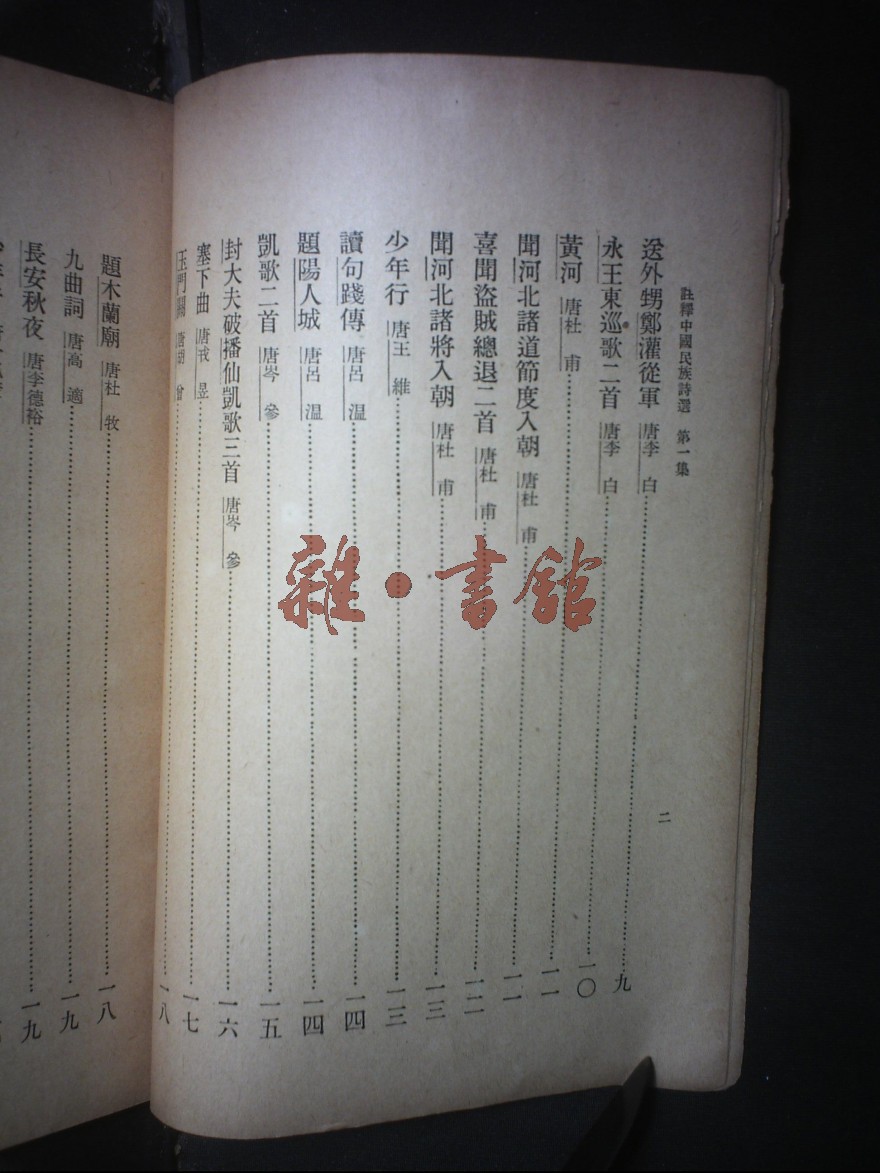 註釋中國民族詩選 第一集
二
送外甥鄭灌從軍 唐李 白 九
永王東巡歌二首 唐李 白 一〇
黃河 唐杜 甫 一一
聞河北諸道節度入朝 唐杜 甫 一一
喜聞盜賊總退二首 唐杜 甫 一二
聞河北諸將入朝 唐杜 甫 一三
少年行 唐王 維 一三
讀句踐傳 唐呂 溫 一四
題陽人城 唐呂 溫 一四
凱歌二首 唐岑 參 一五
封大夫破播仙凱歌三首 唐岑 參 一六
塞下曲 唐戎 昱 一七
玉門關 唐胡 曾 一八
題木蘭廟 唐杜 牧 一八
九曲詞 唐高 適 一九
長安秋夜 唐李德裕 一九
雜·書館